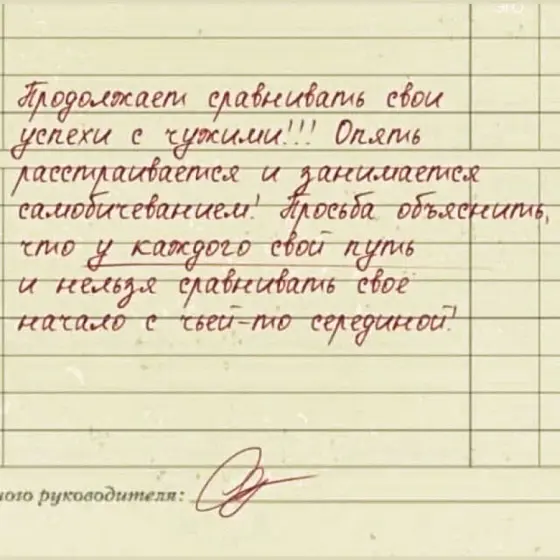 Продолжает сравнивать свои
успехи с чужими!!! Опять
расстраивается и занимается
самобичеванием! Просьба объяснить,
что у каждого свой путь
и нельзя сравнивать своё
начало с чьей-то серединой!
ного руководителя: